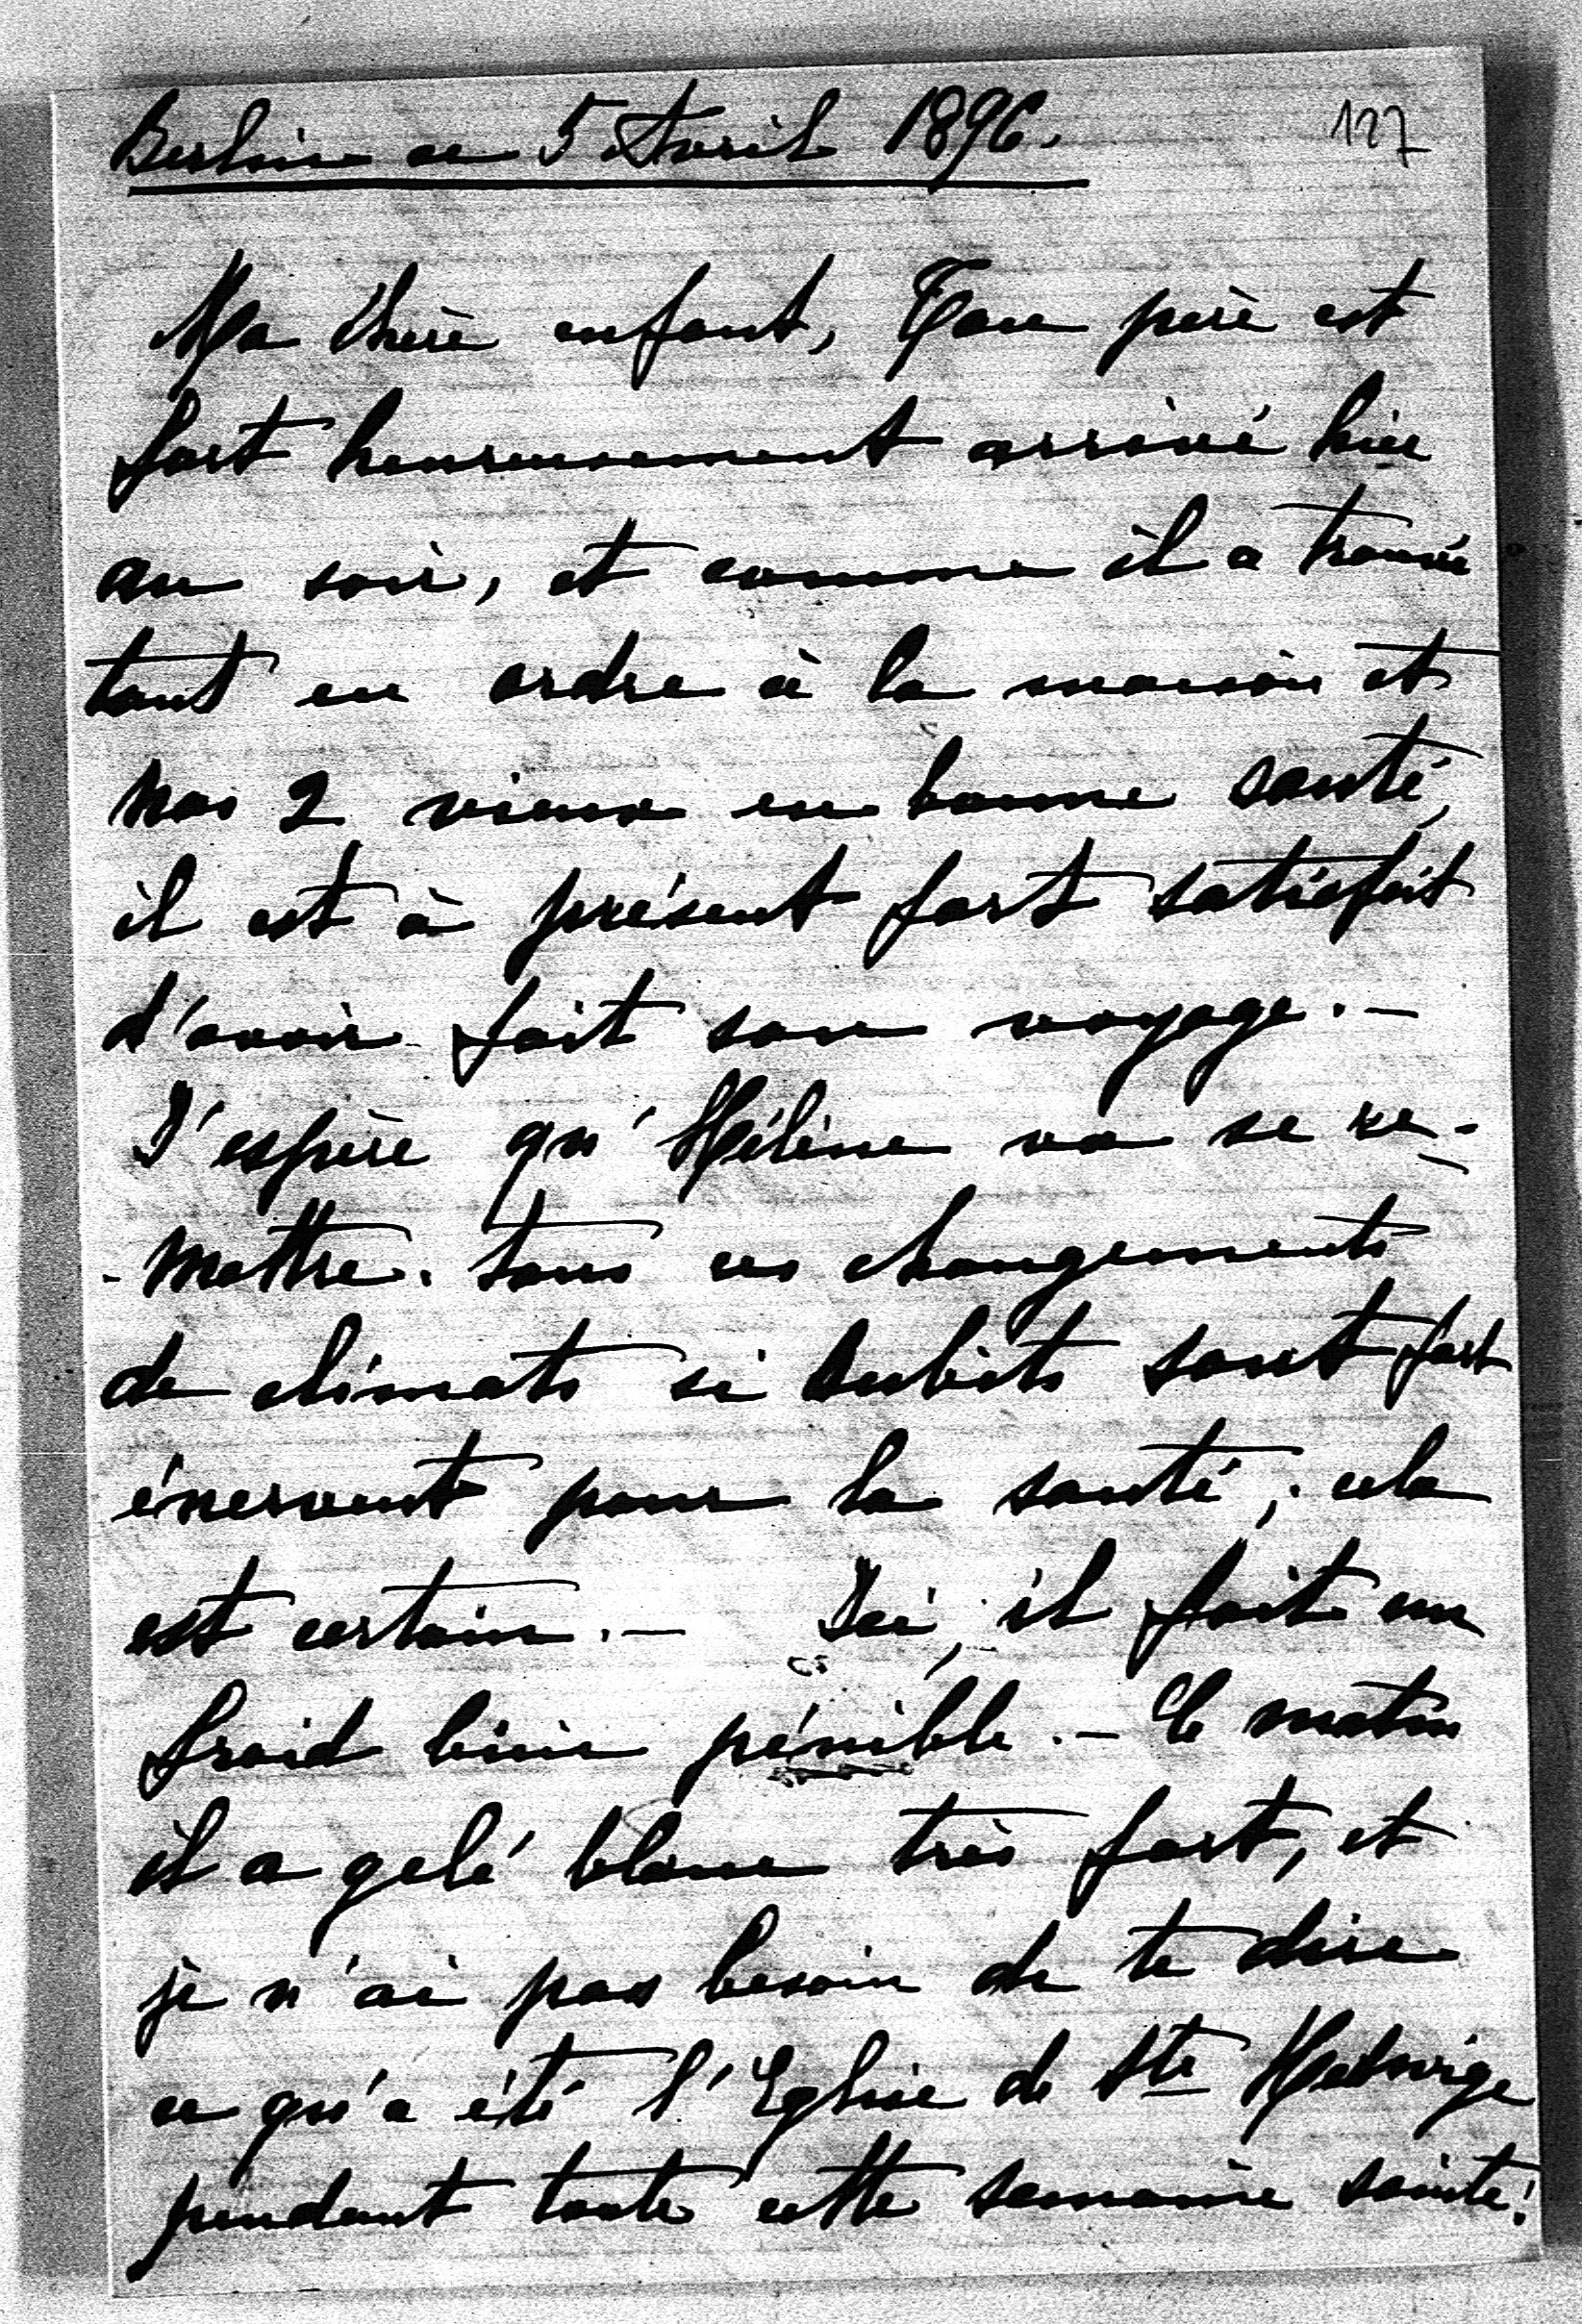 Berlin ce 5 Avril 1896.
127
Ma chère enfant, Ton père est
fort heureusement arrivé hier
au soir, et comme il a trouvé
tout en ordre à la maison et
nos 2 vieux en bonne santé,
il est à présent fort satisfait
d'avoir fait son voyage. –
J'espère qu'Hélène va se re-
-mettre. Tous ces changements
de climats si subits sont fort
énervent pour la santé ; cela
est certain. – Ici, il fait un
froid bien pénible. – Ce matin
il a gelé blanc très fort, et
je n'ai pas besoin de te dire
ce qu'a été l'Eglise de Ste Hedwige
pendant toute cette semaine sainte!